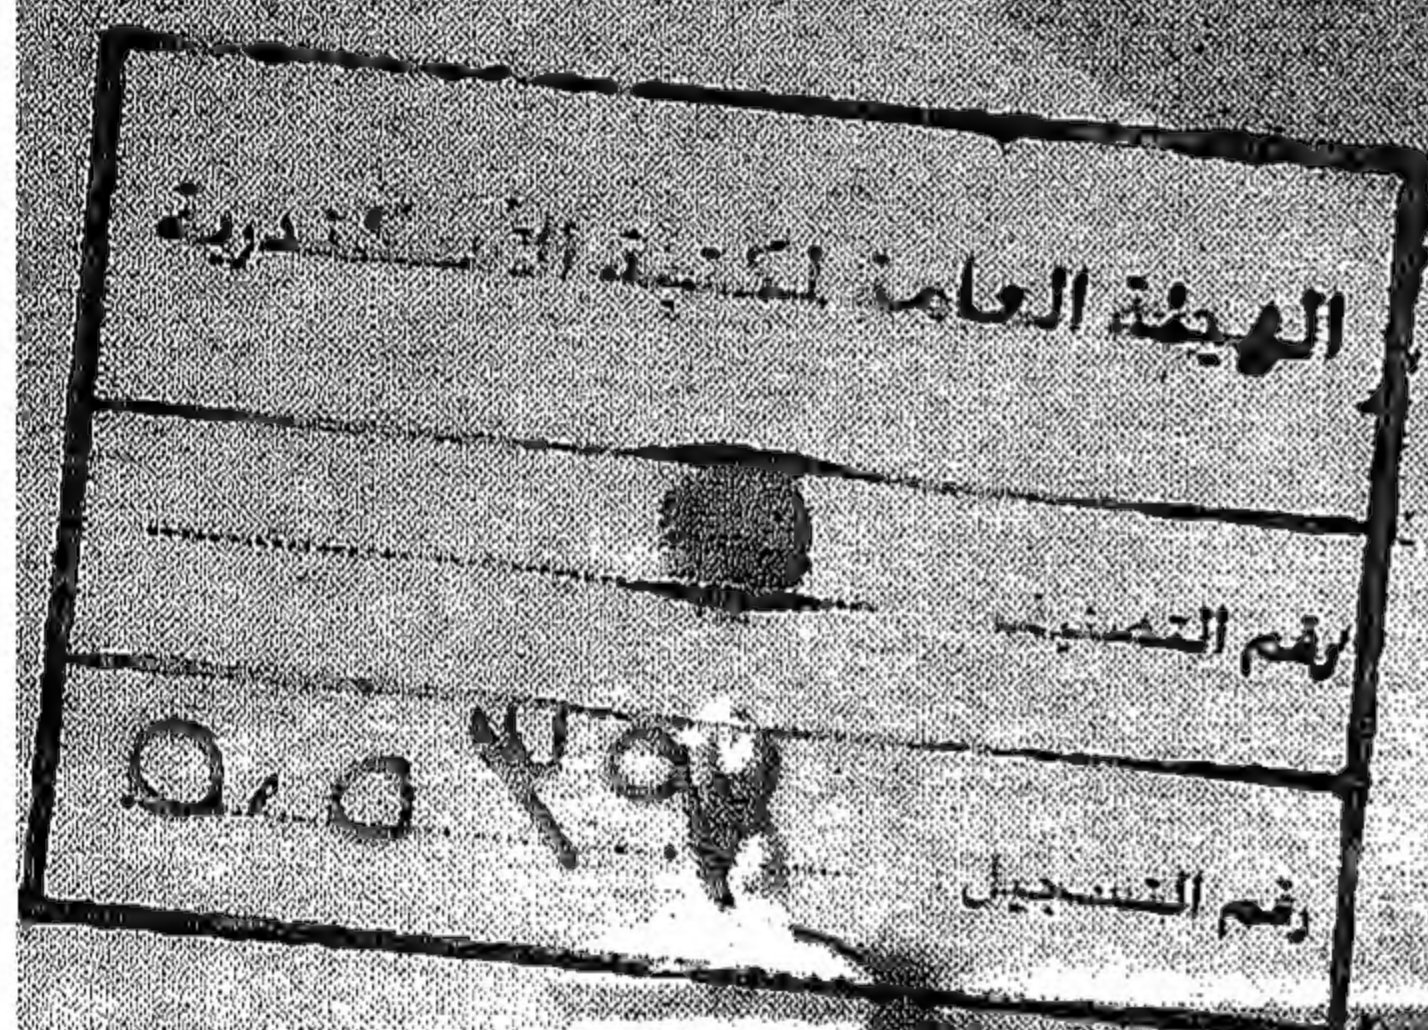 الهيئة العامة لمكتبة الأسكندرية
رقم التصنيف
رقم التسجيل